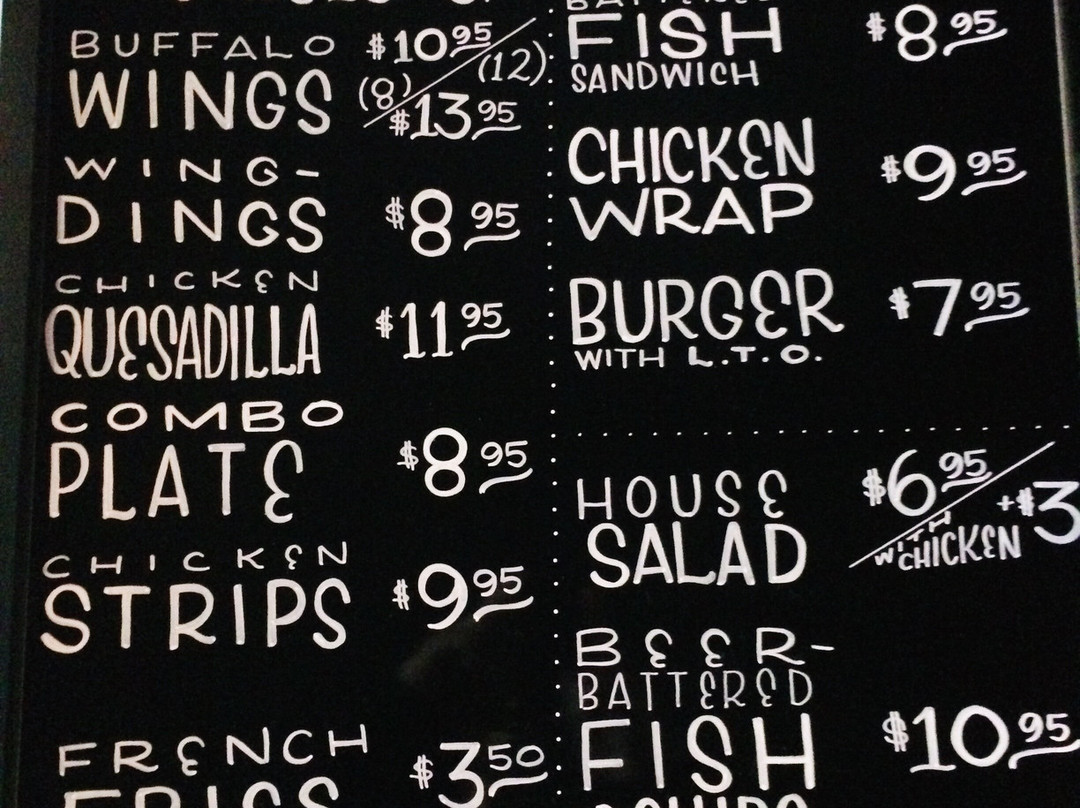 BUFFALO $10.95
(8) / (12)
WINGS $13.95
WING-
DINGS $8.95
CHICKEN
QUESADILLA $11.95
COMBO
PLATE $8.95
CHICKEN
STRIPS $9.95
FRENCH $3.50
FRIES
BATTERED
FISH $8.95
SANDWICH
CHICKEN $9.95
WRAP
BURGER $7.95
WITH L.T.O.
HOUSE $6.95
SALAD +$3
WITH
CHICKEN
BEER-
BATTERED
FISH $10.95